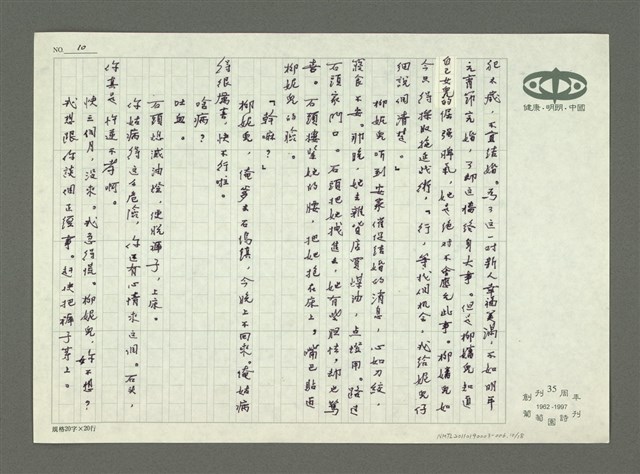 NO. 10
犯太歲，不宜結婚。為了這一對新人幸福美滿，不如明年
元宵節完婚，了却這樁終身大事。但是柳嬸兒知道
自己女兒的倔強脾氣，她是絕對不會應允此事。柳嬸兒如
今只得採取拖延戰術，「行，等找個機會，我給妮兒仔
細說個清楚。」
柳妮兒听到安家催促結婚的消息，心如刀絞，
寢食不安。那晚，她去雜貨店買煤油，点燈用。路过
石頭家門口。石頭把她拽進去，她有些胆怯，却也驚
喜。石頭摟緊她的腰，把她抱在床上，嘴巴貼近
柳妮兒的臉。
「幹嘛？」
柳妮兒，俺爹去石塢鎮，今晚上不回來。俺姑病
得很厲害，快不行啦。
啥病？
吐血。
石頭熄滅油燈，便脫褲子，上床。
你姑病得这么危險，你还有心情來这個。石头，
你真是忤逆不孝啊。
快三個月，沒來。我急得慌。柳妮兒，妳不想？
我想跟你談個正經事。趕快把褲子穿上。
規格20字×20行
健康‧明朗‧中國
創刊35周年
1962-1997
葡萄園詩刊